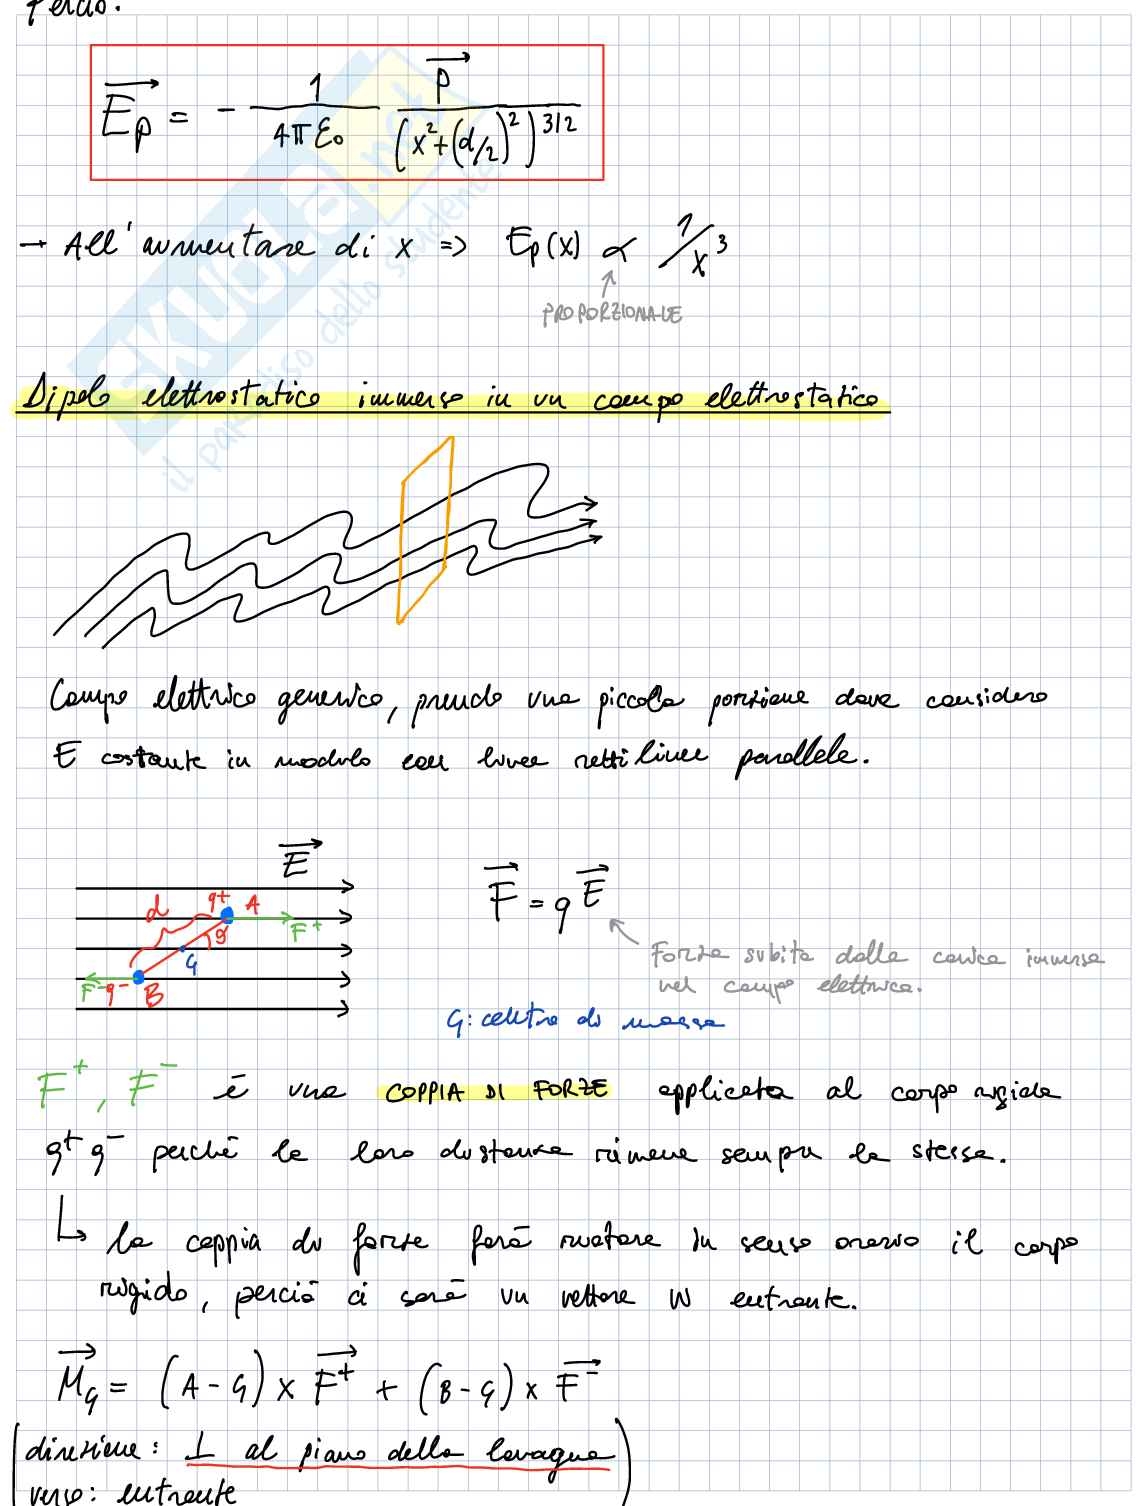 E⃗p = - 1/(4πε₀) p⃗/(x²+(d/2)²)^3/2
→ All'aumentare di x => Ep(x) ∝ 1/x³
PROPORZIONALE
SKUOLA.net
il paradiso dello studente
Dipolo elettrostatico immerso in un campo elettrostatico
Campo elettrico generico, prendo una piccola porzione dove considero
E costante in modulo con linee rettilinee parallele.
E⃗
d q+ A F+
θ
G
F- q- B
F⃗ = qE⃗
Forza subita dalla carica immersa
nel campo elettrico.
G: centro di massa
F+, F- è una COPPIA DI FORZE applicata al corpo rigido
q+ q- perché la loro distanza rimane sempre la stessa.
↳ la coppia di forze farà ruotare in senso orario il corpo
rigido, perciò ci sarà un vettore W entrante.
M⃗G = (A-G) x F⃗+ + (B-G) x F⃗-
(direzione: ⊥ al piano della lavagna)
verso: entrante